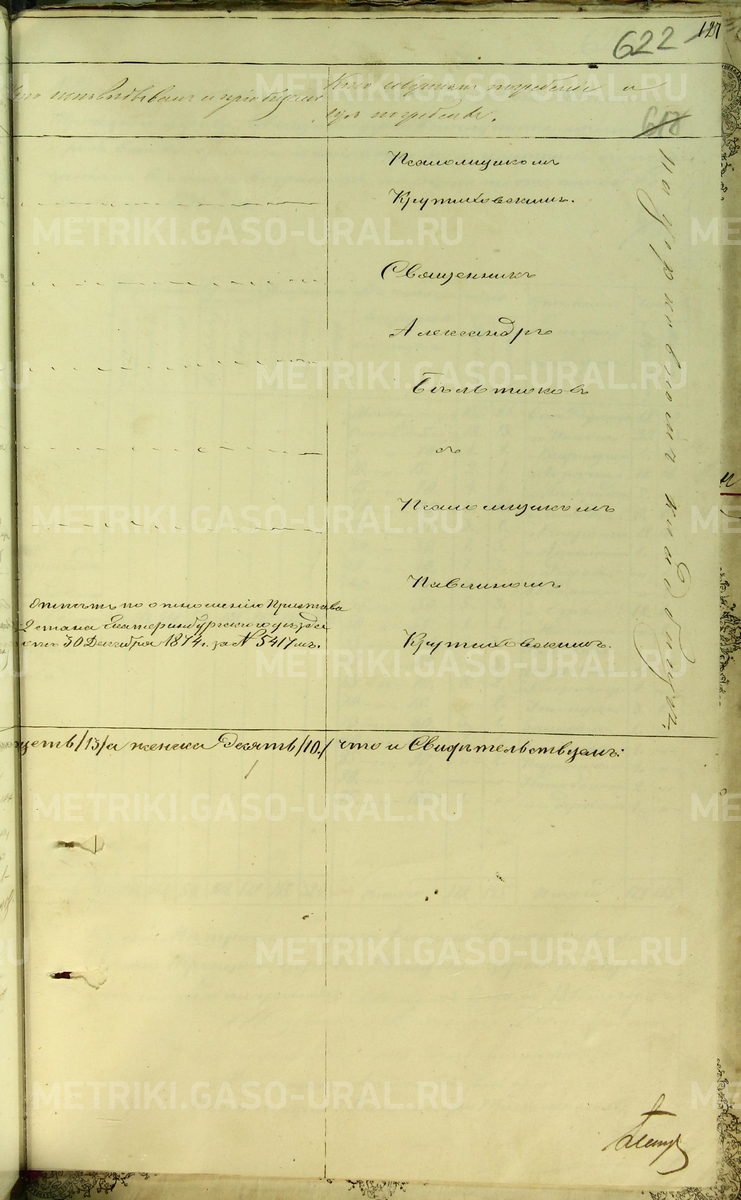 127
622
Кто исповѣдывалъ и пріобщалъ
Кто совершалъ погребеніе и
гдѣ погребены.
618
Псаломщикомъ
Крутиховскимъ.
Священникъ
Александръ
Бѣльтюковъ
съ
Псаломщикомъ
Павлиномъ
Крутиховскимъ.
На церковномъ кладбищѣ.
Отпѣтъ по отношенію Пристава
2 стана Екатеринбургскаго уѣзда
отъ 30 Декабря 1874 г. за № 5417 мъ.
цать /13/ а женска десять /10./ что и Свидѣтельствуемъ:
METRIKI.GASO-URAL.RU